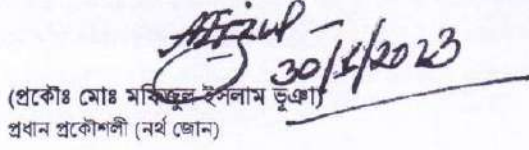 30/1/2023
(প্রকৌঃ মোঃ মফিজুল ইসলাম ভূঞা)
প্রধান প্রকৌশলী (নর্থ জোন)